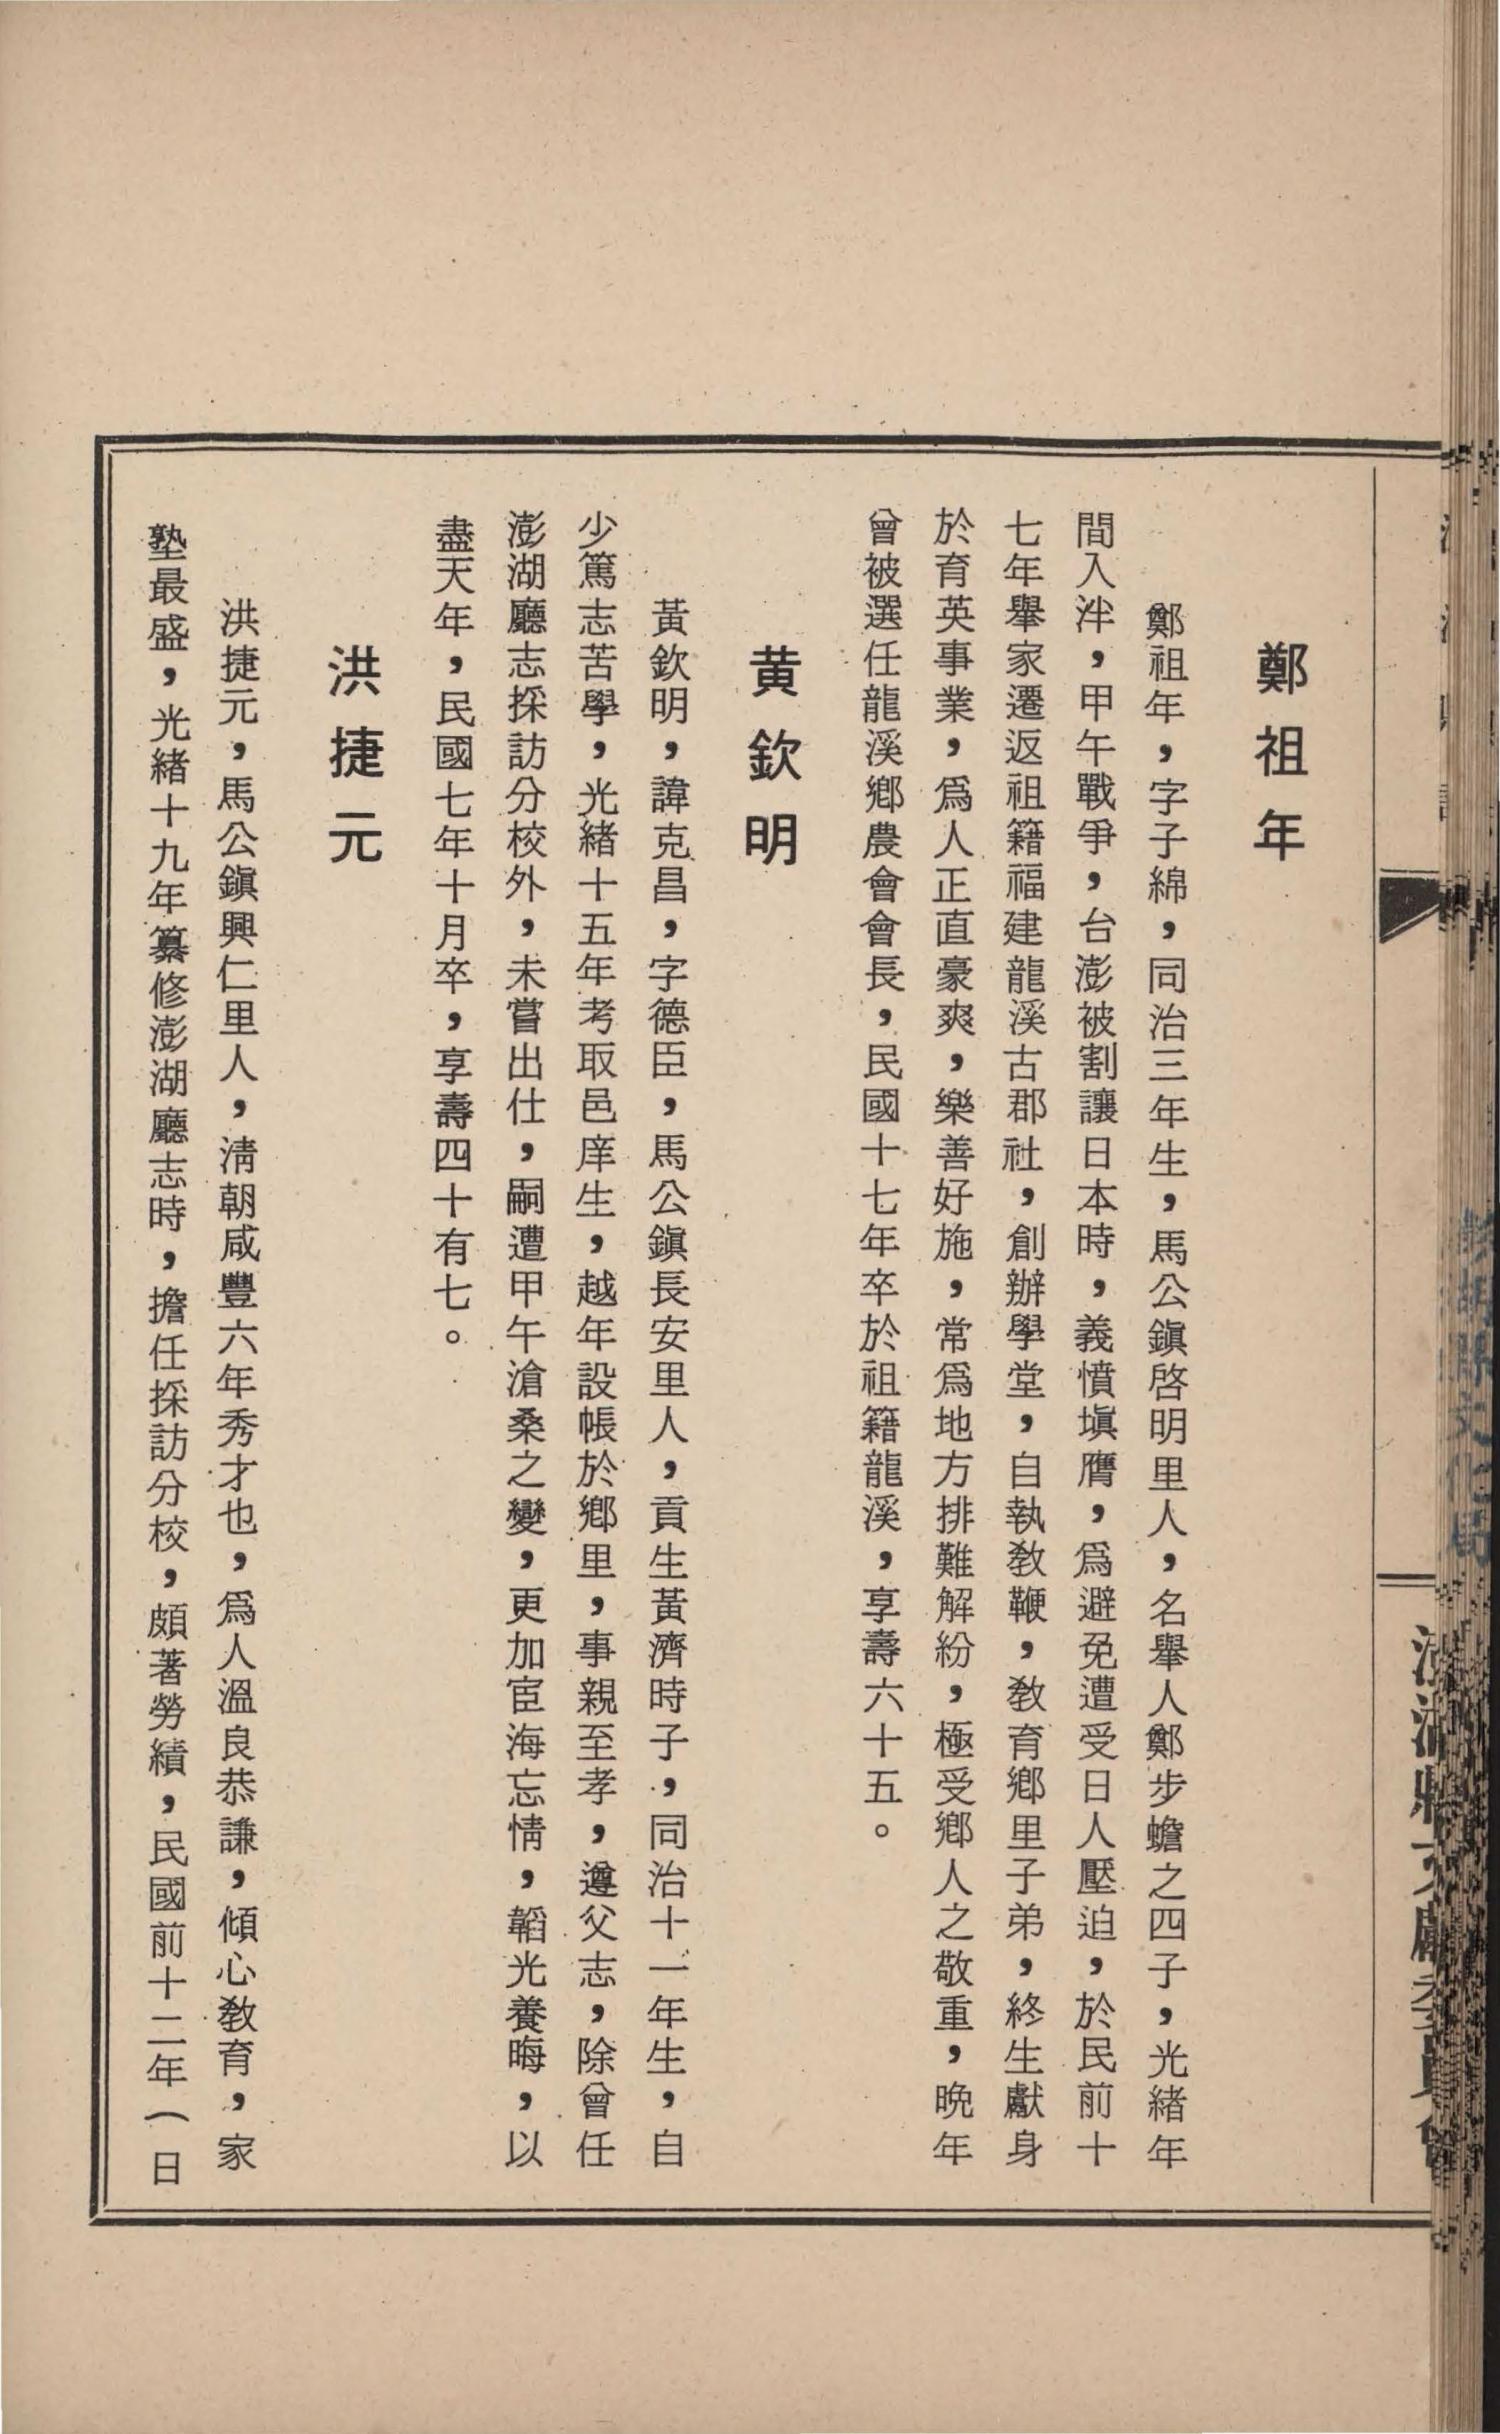 鄭祖年
鄭祖年，字子綿，同治三年生，馬公鎭啓明里人，名舉人鄭步蟾之四子，光緒年
間入泮，甲午戰爭，台澎被割讓日本時，義憤塡膺，爲避免遭受日人壓迫，於民前十
七年舉家遷返祖籍福建龍溪古郡社，創辦學堂，自執敎鞭，敎育鄕里子弟，終生獻身
於育英事業，爲人正直豪爽，樂善好施，常爲地方排難解紛，極受鄕人之敬重，晚年
曾被選任龍溪鄕農會會長，民國十七年卒於祖籍龍溪，享壽六十五。
黄欽明
黃欽明，諱克昌，字德臣，馬公鎭長安里人，貢生黃濟時子，同治十一年生，自
少篤志苦學，光緒十五年考取邑庠生，越年設帳於鄕里，事親至孝，遵父志，除曾任
澎湖廳志採訪分校外，未嘗出仕，嗣遭甲午滄桑之變，更加宦海忘情，韜光養晦，以
盡天年，民國七年十月卒，享壽四十有七。
洪捷元
洪捷元，馬公鎭興仁里人，淸朝咸豐六年秀才也，爲人溫良恭謙，傾心敎育，家
塾最盛，光緒十九年纂修澎湖廳志時，擔任採訪分校，頗著勞績，民國前十二年（日